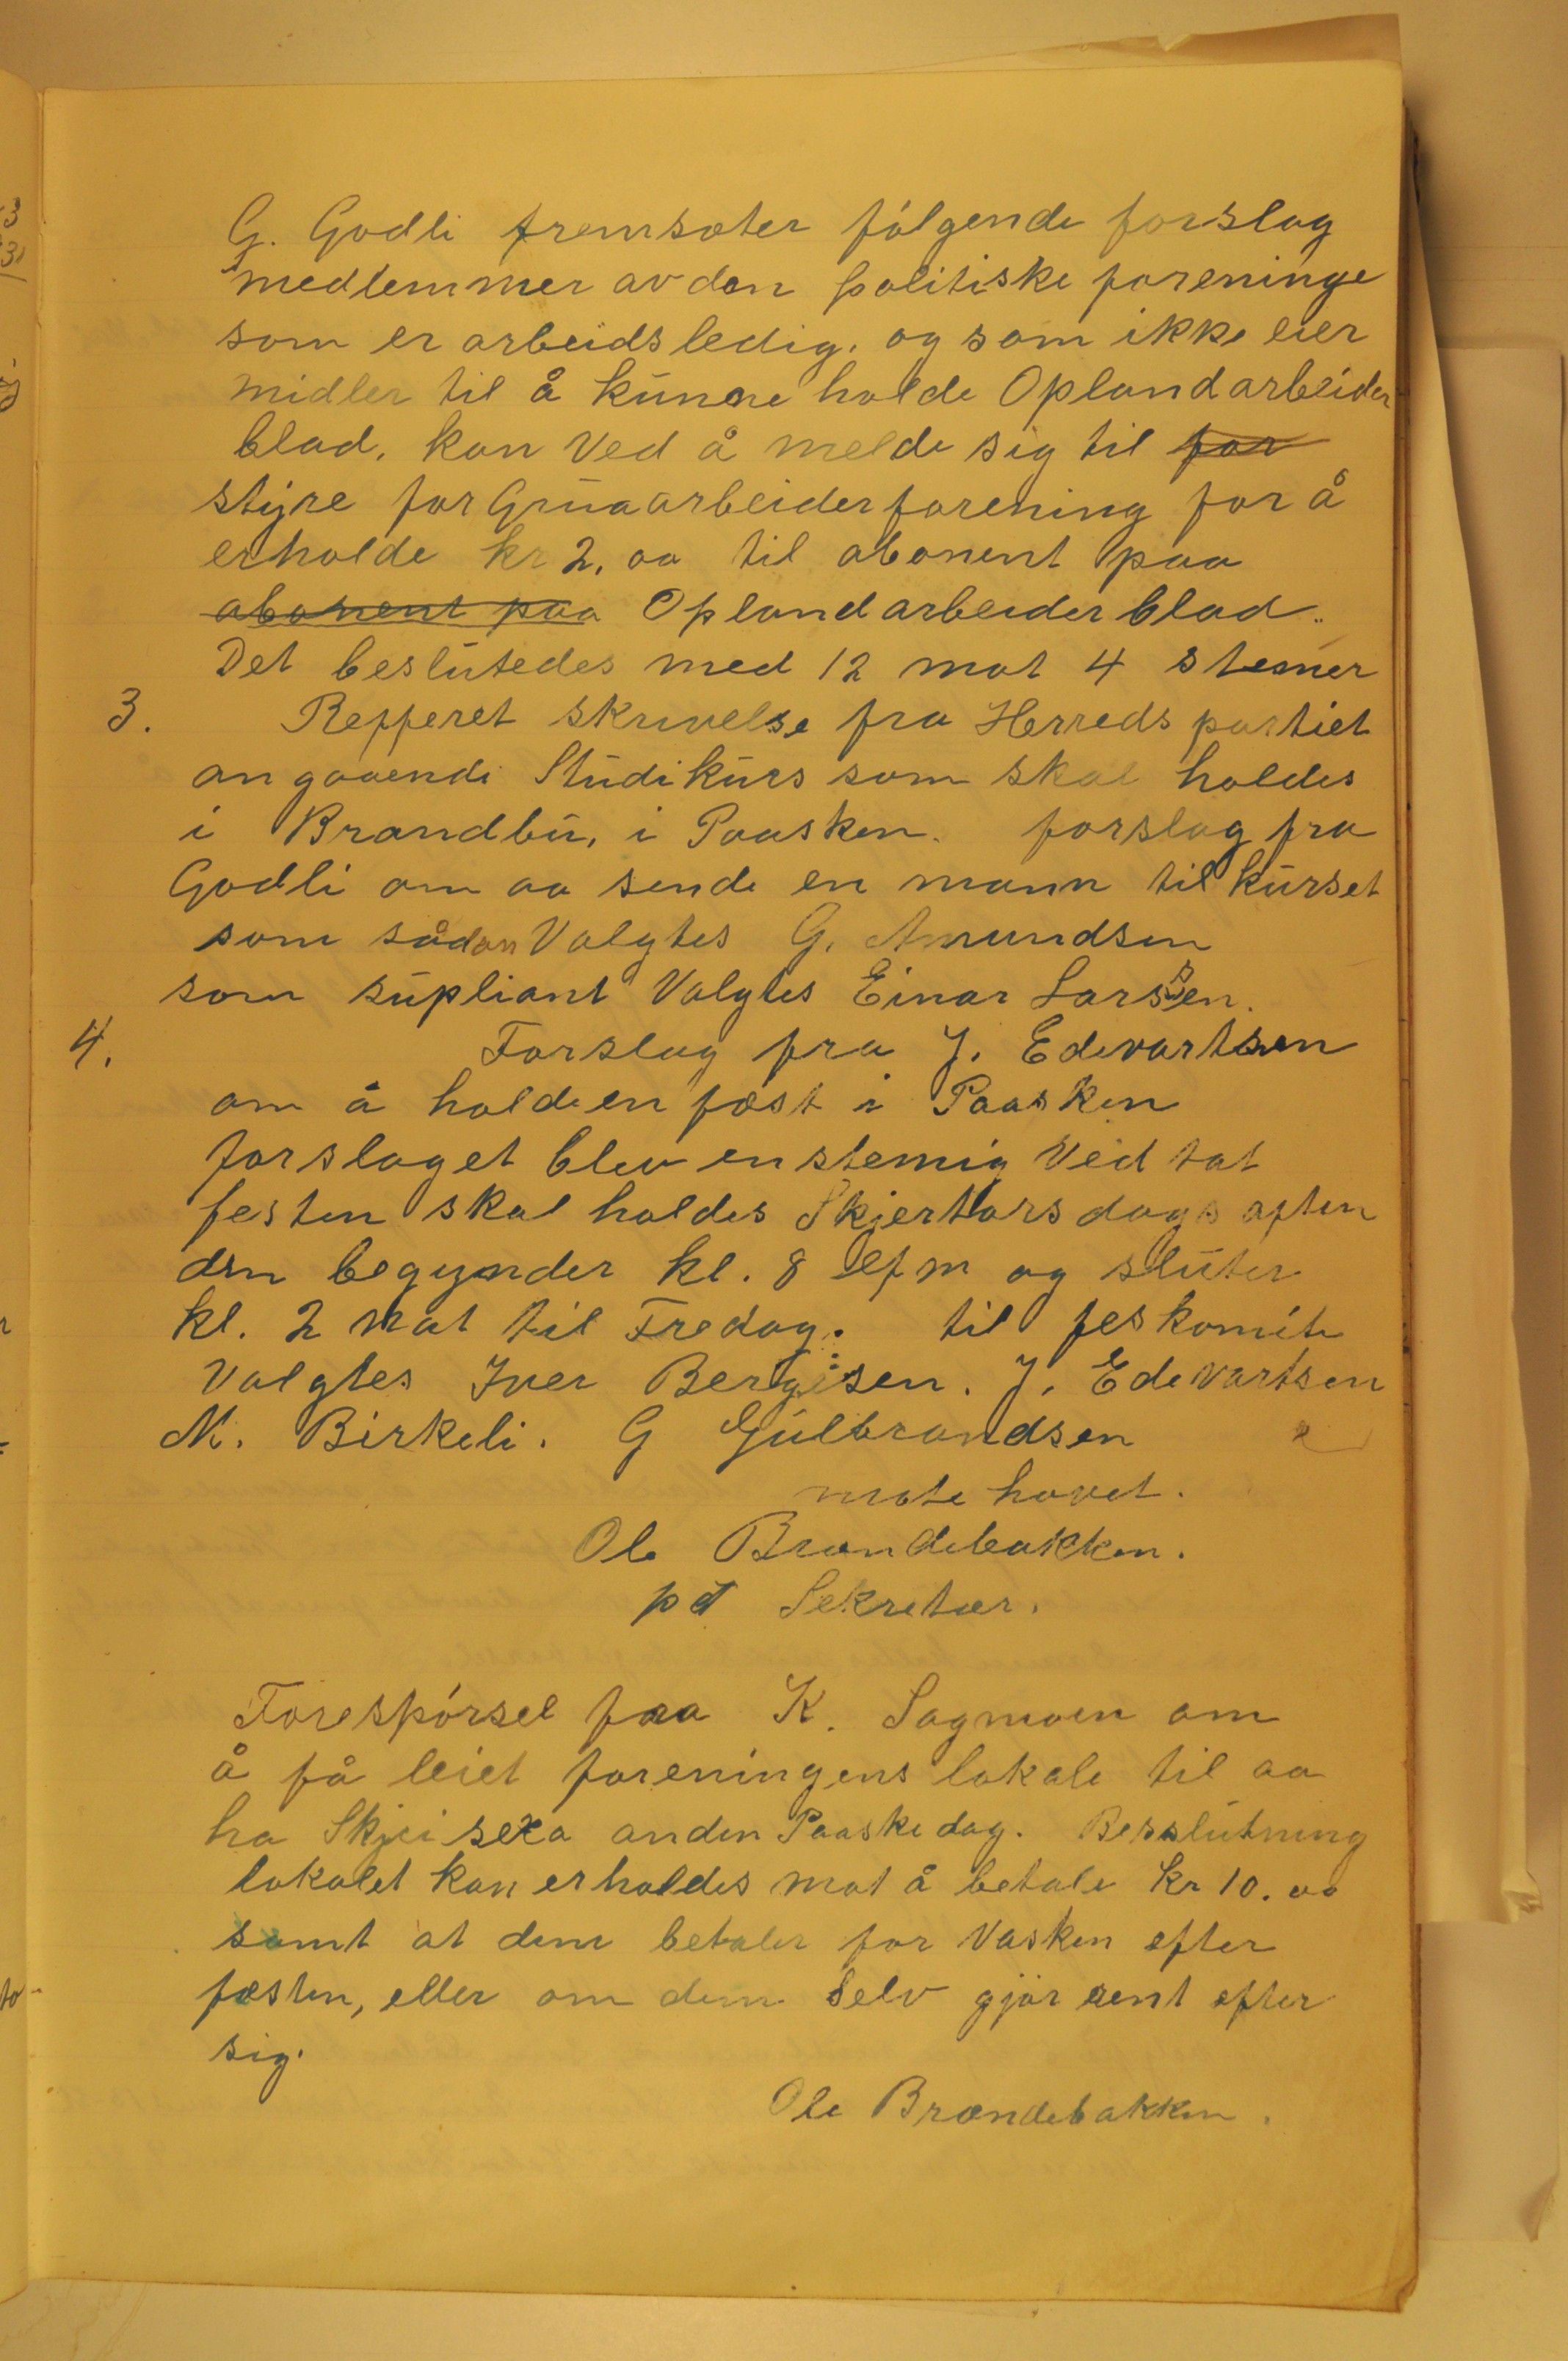 G. Godli fremsæter følgende forslag
medlemmer av den politiske foreninge
som er arbeidsledig, og som ikke eier
midler til å kunne holde Opland arbeider
blad, kan Ved å melde sig til for
styre for Grua arbeiderforening for å
erholde kr 2,00 til abonent paa
abonent paa Opland arbeider blad.
Det beslutedes med 12 mot 4 stemer
3. Refferet skrivelse fra Herreds partiet
an gaaende Studikurs som skal holdes
i Brandbu, i Paasken. forslag fra
Godli om aa sende en mann til kurset
som sådan Valgtes G. Amundsen
som supliant Valgtes Einar Larssen.
4. Forslag fra J. Edevartsen
om å holde en fæst i Paasken
forslaget blev enstemig Ved tat
festen skal holdes Skjertorsdags aften
den begynder kl. 8 efm og sluter
kl. 2 nat til Fredag. til feskomite
Valgtes Iver Bergersen. J. Edevartsen
M. Birkeli. G Gulbrandsen
møte hævet.
Ole Brændebakken.
pt Sekretær.
Forespørsel fra K. Sagmoen om
å få leiet foreningens lokale til aa
ha Skjeisexa anden Paaskedag. Besslutning
lokalet kan erholdes mot å betale kr 10.00
samt at dem betaler for Vasken efter
fæsten, eller om dem Selv gjør rent efter
sig.
Ole Brændebakken.